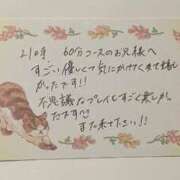 21時 60分コースのお兄様へ
すごい優しくて気にかけてくれて嬉し
かったです!!
不思議なプレイもすごく楽しか
たです
また来て下さい!!